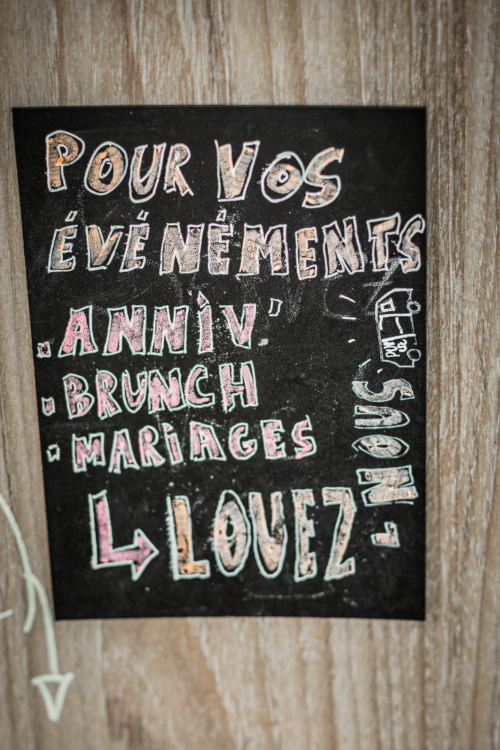 POUR VOS
ÉVÉNÈMENTS
. ANNiV'
. BRUNCH
. MARiAGES
↳ LOUEZ
- NOUS